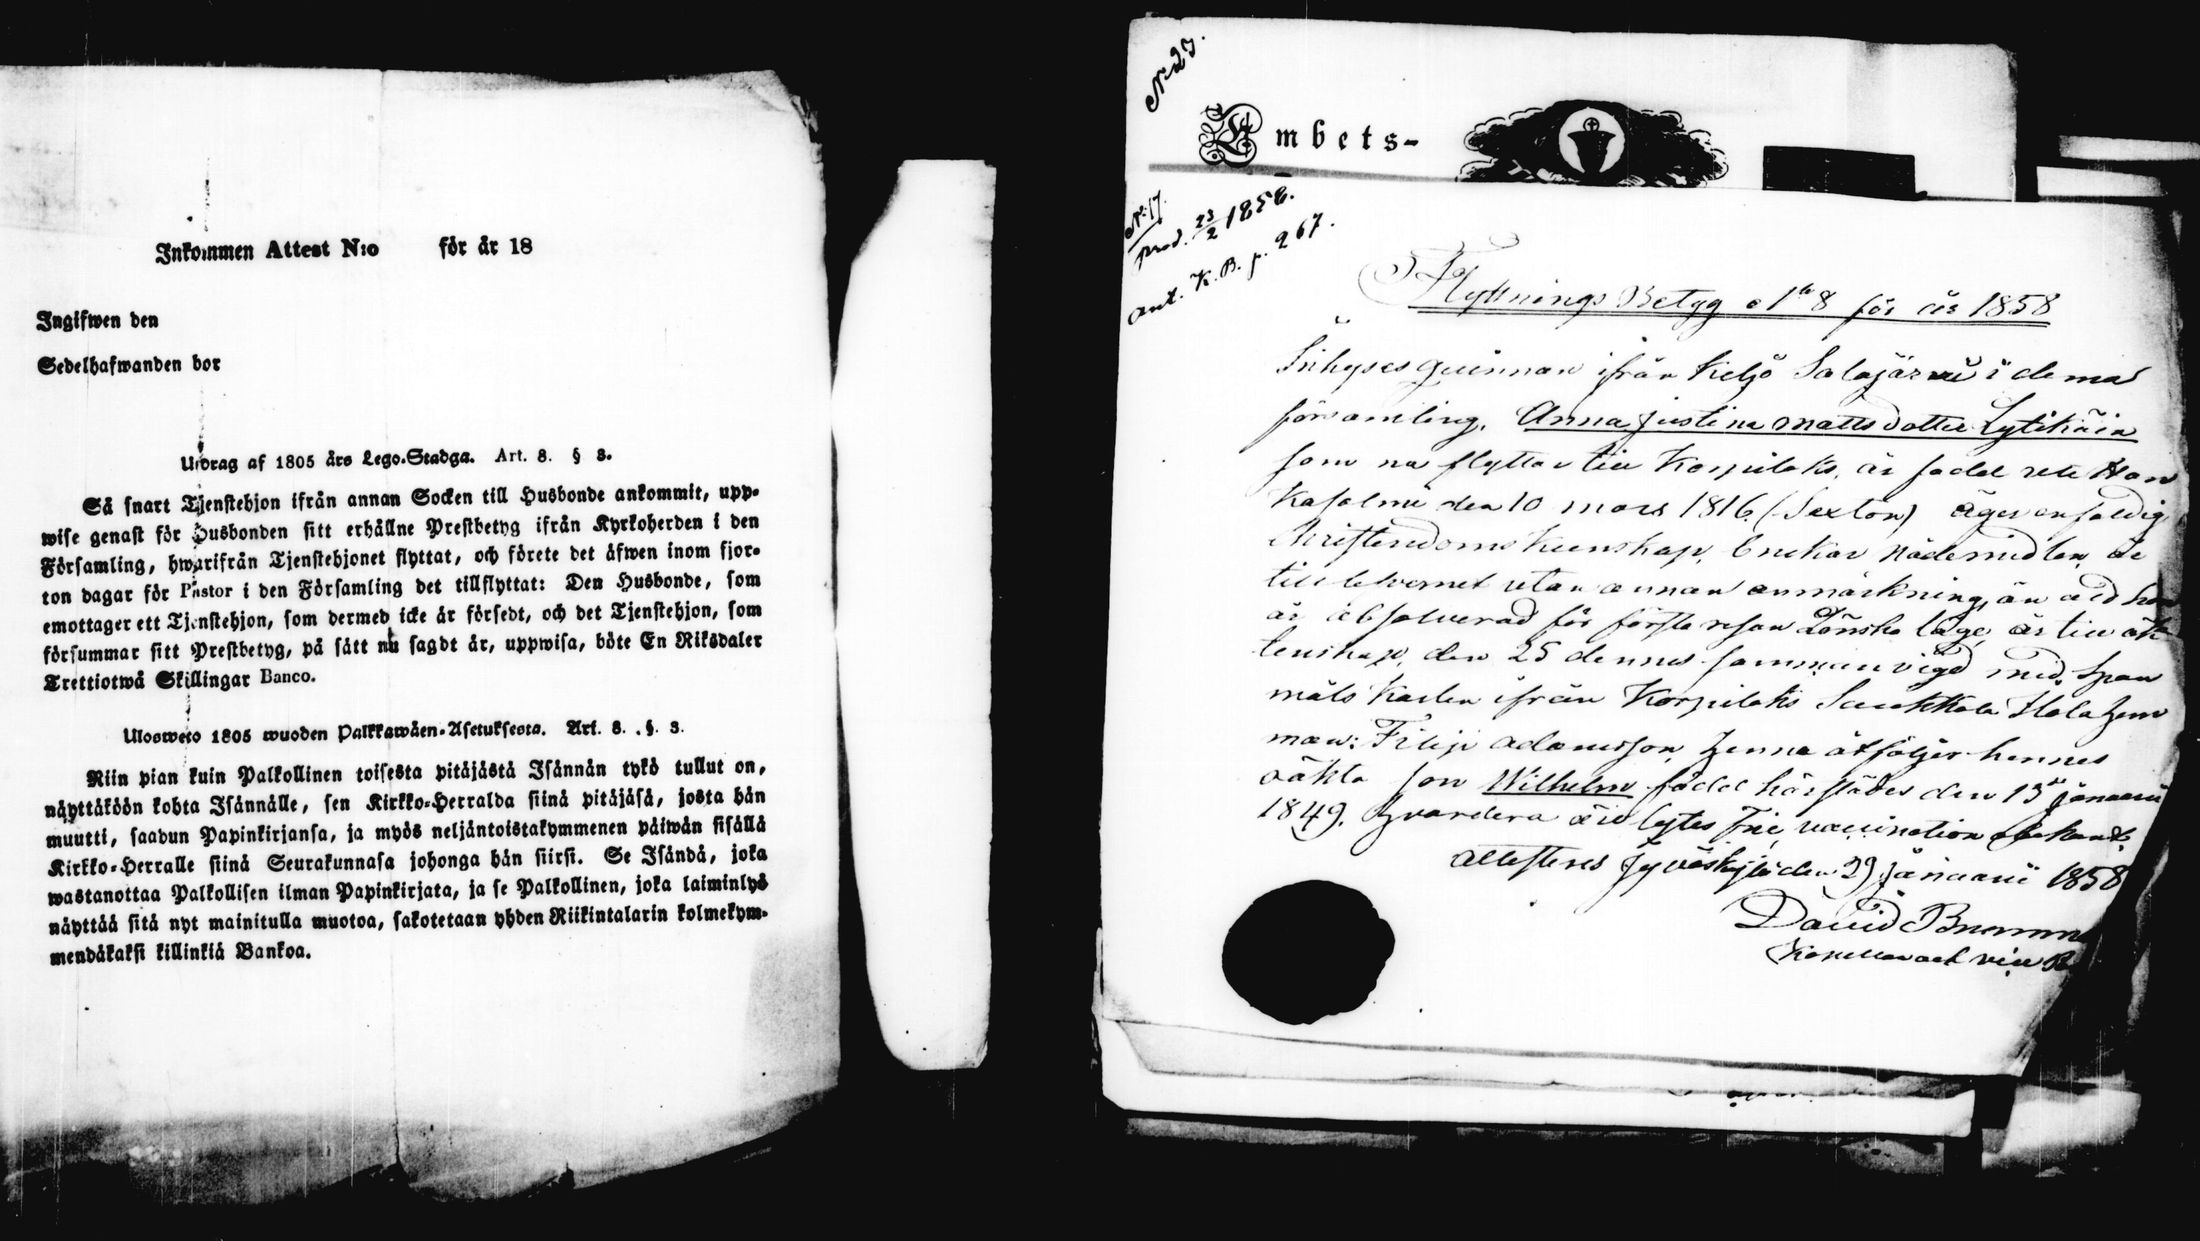 Inkommen Attest N:o för år 18
Ingifwen den
Sedelhafwanden bor
Utdrag af 1805 års Lego-Stadga. Art. 8. § 3.
Så snart Tjenstehjon ifrån annan Socken till Husbonde ankommit, upp-
wise genast för Husbonden sitt erhållne Prestbetyg ifrån Kyrkoherden i den
Församling, hwarifrån Tjenstehjonet flyttat, och förete det äfwen inom fjor-
ton dagar för Pastor i den Församling det tillflyttat: Den Husbonde, som
emottager ett Tjenstehjon, som dermed icke är försedt, och det Tjenstehjon, som
försummar sitt Prestbetyg, på sätt nu sagdt är, uppwisa, böte En Riksdaler
Trettiotwå Skillingar Banco.
Ulosweto 1805 wuoden Palkkawäen-Asetuksesta. Art. 8. §. 3.
Niin pian kuin Palkollinen toisesta pitäjästä Isännän tykö tullut on,
näyttäköön kohta Isännälle, sen Kirkko-Herralda siinä pitäjäsä, josta hän
muutti, saadun Papinkirjansa, ja myös neljäntoistakymmenen päiwän sisällä
Kirkko-Herralle siinä Seurakunnasa johonga hän siirsi. Se Isändä, joka
wastanottaa Palkollisen ilman Papinkirjata, ja se Palkollinen, joka laiminlyö
näyttää sitä nyt mainitulla muotoa, sakotetaan yhden Riikintalarin kolmekym-
mendäkaksi killinkiä Bankoa.
N:o 23.
Embets-
N:o 17.
prod. 23/2 1858.
ant. K. B. p. 267.
Flyttnings Betyg No 8 för år 1858
Inhyses qvinnan ifrån Keljo Salajärvi i denna
församling, Anna Justina Mattsdotter Lytikäin
som nu flyttar till Korpilaks, är född uti Han
kasalmi den 10 Mars 1816. (Sexton) äger enfaldig
Christendoms kunskap, brukar nådemedlen, är
till lefvernet utan annan anmärkning, än att hon
är absolverad för första resan Lönska läge, är till äk
tenskap, den 25 dennes sammanvigd med Span
måls Karlen ifrån Korpilaks Saukkola
man: Filip Adamsson, henne åtföljer hennes
oäkta son Wilhelm född härstädes den 15 Januari
1849. Hvardera äro lytes frie, vaccination
Attesteras Jyväskylä den 29 Januari 1858
David